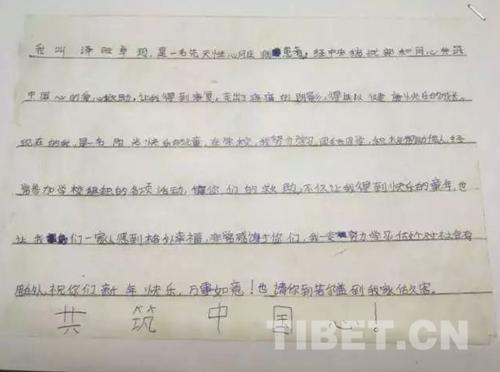 我叫泽 卓玛,是一名先天性心脏病患者,经中央统战部和同心共筑
中国心的爱心救助,让我得到康复,走出了疼痛的阴影,得以健康快乐的成长。
现在的我,是一名阳光快乐的儿童,在学校,我努力学习,团结同学,积极帮助他人,经
常参加学校组织的各项活动,你们的救助,不仅让我得到快乐的童年,也
让我们一家人感到格外幸福,非常感谢你们,我一定努力学习 做个对社会有
用的人,祝你们新年快乐,万事如意!也请你到若尔盖到我家做客。
共筑中国心!
TIBET.CN